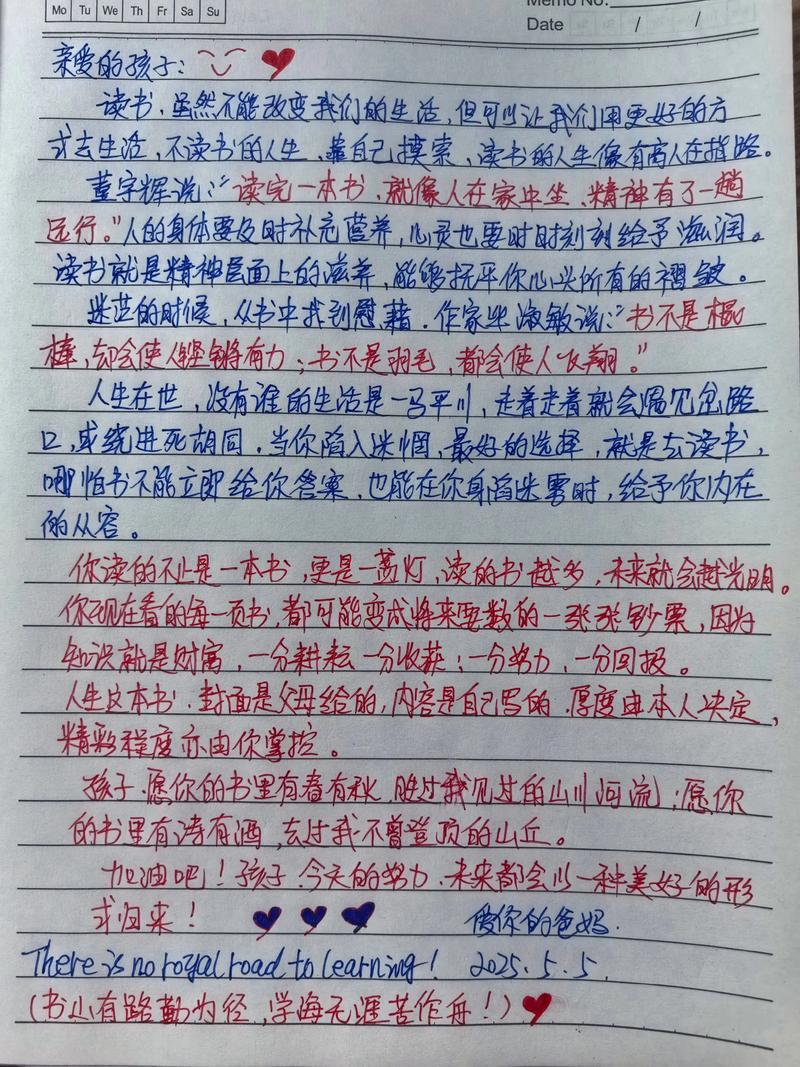 Mo Tu We Th Fr Sa Su
Memo No.
Date / /
亲爱的孩子:
读书,虽然不能改变我们的生活,但可以让我们用更好的方
式去生活,不读书的人生、靠自己摸索,读书的人生像有高人在指路。
董宇辉说:“读完一本书、就像人在家中坐、精神有了一趟
远行。”人的身体要及时补充营养,心灵也要时时刻刻给予滋润。
读书就是精神层面上的滋养,能够抚平你心头所有的褶皱。
迷茫的时候,从书中找到慰藉.作家毕淑敏说:“书不是棍
棒,却会使人铿锵有力;书不是羽毛,都会使人飞翔。”
人生在世,没有谁的生活是一马平川,走着走着就会遇见岔路
口,或绕进死胡同.当你陷入迷惘,最好的选择,就是去读书,
哪怕书不能立即给你答案,也能在你身陷迷雾时,给予你内在
的从容。
你读的不止是一本书,更是一盏灯,读的书越多,未来就会越光明。
你现在看的每一页书,都可能变成将来要数的一张张钞票,因为
知识就是财富,一分耕耘一分收获;一分努力,一分回报。
人生这本书.封面是父母给的,内容是自己写的.厚度由本人决定,
精彩程度亦由你掌控。
孩子.愿你的书里有春有秋.胜过我见过的山川河流;愿你
的书里有诗有酒,去过我不曾登顶的山丘。
加油吧!孩子.今天的努力.未来都会以一种美好的形
式归来!
爱你的爸妈.
There is no royal road to learning! 2025.5.5.
(书山有路勤为径,学海无涯苦作舟!)